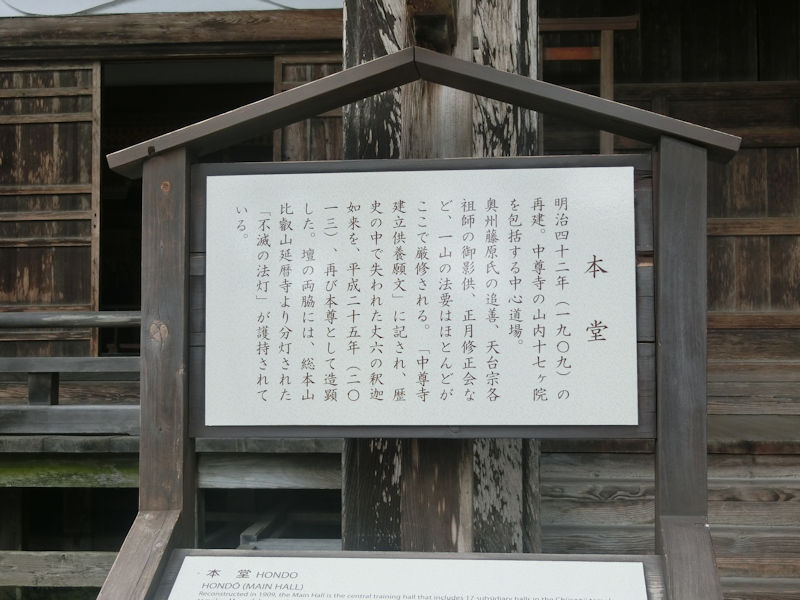 本堂
明治四十二年（一九〇九）の
再建。中尊寺の山内十七ヶ院
を包括する中心道場。
奥州藤原氏の追善、天台宗各
祖師の御影供、正月修正会な
ど、一山の法要はほとんどが
ここで厳修される。「中尊寺
建立供養願文」に記され、歴
史の中で失われた丈六の釈迦
如来を、平成二十五年（二〇
一三）、再び本尊として造顕
した。壇の両脇には、総本山
比叡山延暦寺より分灯された
「不滅の法灯」が護持されて
いる。
本 堂 HONDO
HONDŌ (MAIN HALL)
Reconstructed in 1909, the Main Hall is the central training hall that includes 17 subsidiary halls in the